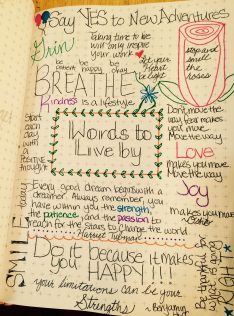 Say YES to New Adventures
Grin
Taking time to be
will only inspire
your work
be patient
be happy
be okay
let your Heart
be light
stop and
smell
the
roses
BREATHE
Kindness is a lifestyle
Start
each
day
with
a
Positive
thought
Words to
Live by
Don't move the
way fear makes
you move.
Move the way
Love
makes you move
Move the way
Joy
makes you move
Every good dream begins with a
dreamer. Always remember, you
have within you the strength,
the patience, and the passion to
reach for the stars to change the world
Harriet Tubman
SMILE
today
Do it because it makes
you HAPPY!!!
your limitations can be your
Strengths
Benjamin
be thankful for
what is
RIGHT